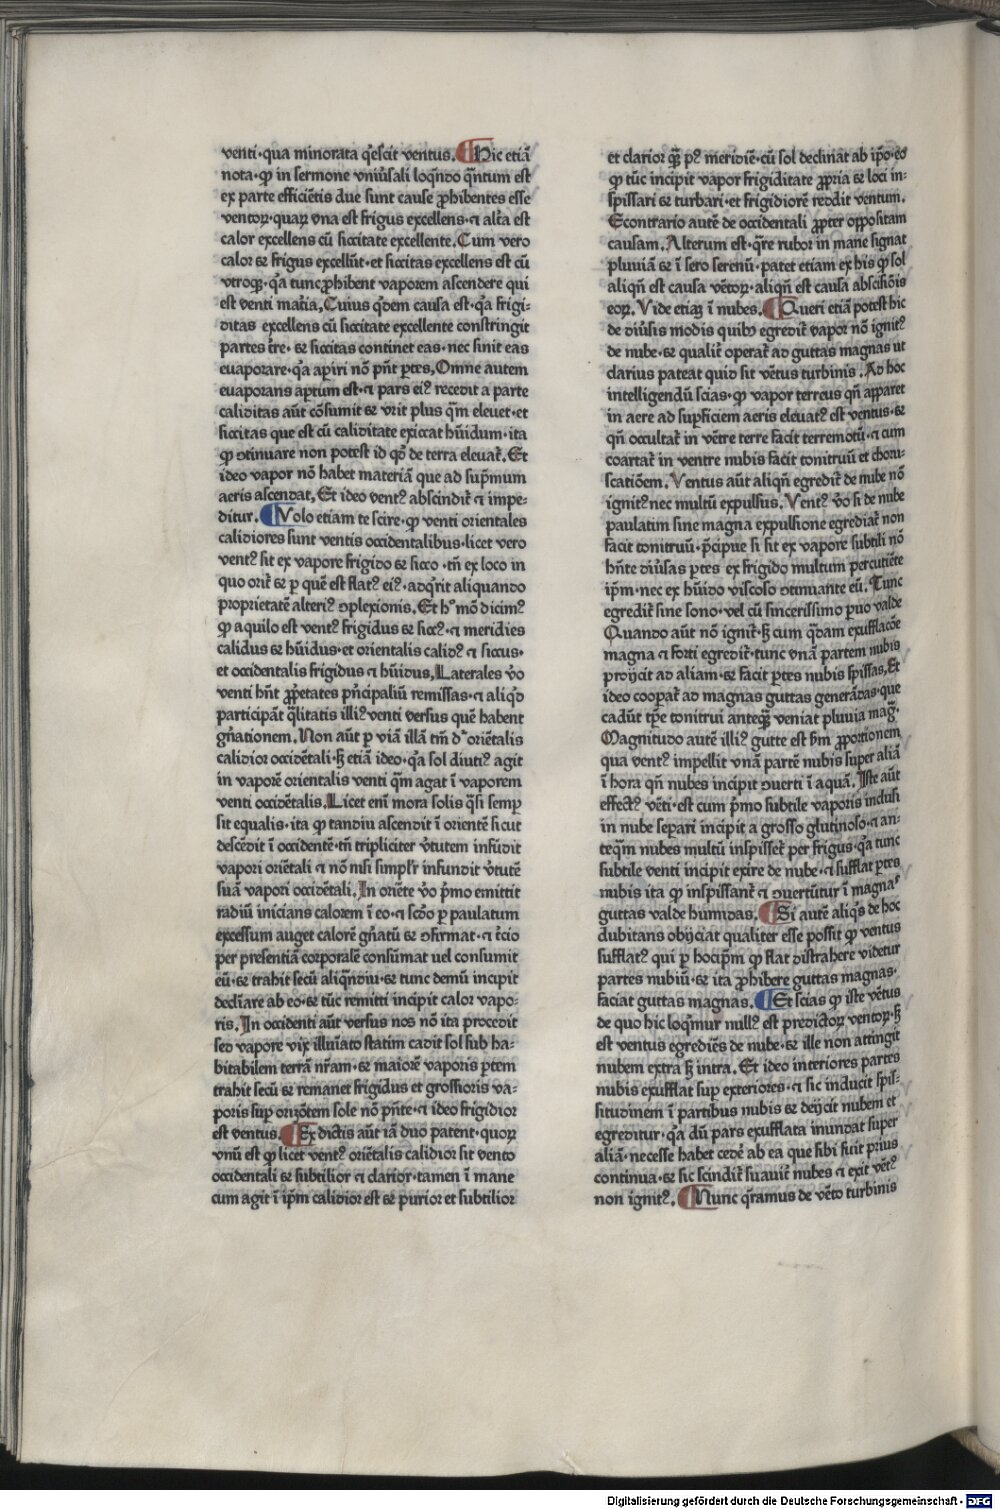 venti·qua minorata q̄escit ventus. ¶ Hic etiā
nota·ꝙ in sermone vniūsali loqn̄do qn̄tum est
ex parte efficiētis due sunt cause ꝓhibentes esse
ventoꝝ·quaꝝ vna est frigus excellens·⁊ alt̄a est
calor excellens cū siccitate excellente. Cum vero
calor ⁊ frigus excellūt·et siccitas excellens est cū
vtroqꝫ·q̄a tunc ꝓhibent vaporem ascendere qui
est venti mat̄ia. Cuius qͥdem causa est·q̄a frigi⸗
ditas excellens cū siccitate excellente constringit
partes t̄re·⁊ siccitas continet eas·nec sinit eas
euaporare·q̄a apiri nō pn̄t ꝑtes. Omne autem
euaporans aptum est·⁊ pars eiꝰ recedit a parte
caliditas aūt cōsumit ⁊ vrit plus qm̄ eleuet·et
siccitas que est cū caliditate exiccat hūidum·ita
ꝙ ↄtinuare non potest id qd̄ de terra eleuat̄. Et
ideo vapor nō habet materiā que ad sup̄mum
aeris ascendat. Et ideo ventꝰ abscindit̄ ⁊ impe⸗
ditur. ¶ Volo etiam te scire·ꝙ venti orientales
calidiores sunt ventis occidentalibus·licet vero
ventꝰ sit ex vapore frigido ⁊ sicco·tn̄ ex loco in
quo orit̄ ⁊ ꝑ quē est flatꝰ eiꝰ·adqͥrit aliquando
proprietatē alteriꝰ ↄplexionis. Et hͦ mō dicimꝰ
ꝙ aquilo est ventꝰ frigidus ⁊ siccꝰ·⁊ meridies
calidus ⁊ hūidus·et orientalis calidꝰ ⁊ siccus·
et occidentalis frigidus ⁊ hūidus. Laterales v̄o
venti hn̄t ꝓp̄etates pn̄cipaliū remissas·⁊ aliqͥd
participāt qͣlitatis illiꝰ venti versus quē habent
gn̄ationem. Non aūt ꝑ viā illā tm̄ dͣ oriētalis
calidior occidētali·ß etiā ideo·q̄a sol diutiꝰ agit
in vaporē orientalis venti qm̄ agat ī vaporem
venti occidētalis. Licet eni mora solis qͣsi semꝑ
sit equalis·ita ꝙ tandiu ascendit ī orientē sicut
descēdit ī occidentē·tn̄ tripliciter v̄tutem infūdit
vapori oriētali ⁊ nō nisi simplr̄ infundit v̄tutē
suā vapori occidētali. In oriēte v̄o pͥmo emittit
radiū inicians calorem ī eo·⁊ scd̄o ꝑ paulatum
excessum auget calorē gn̄atū ⁊ ↄfirmat·⁊ t̄cio
per presentiā corporalē consūmat uel consumit
eū·⁊ trahit secū aliqn̄diu·⁊ tunc demū incipit
decliare ab eo·⁊ tūc remitti incipit calor vapo⸗
ris. In occidenti aūt versus nos nō ita procedit
sed vapore vix illuīato statim cadit sol sub ha⸗
bitabilem terrā nr̄am·⁊ maiorē vaporis ꝑtem
trahit secū ⁊ remanet frigidus et grossioris va⸗
poris sup orizōtem sole nō pn̄te·⁊ ideo frigidior
est ventus. ¶ Ex dictis aūt iā duo patent·quoꝝ
vnū est ꝙ licet ventꝰ oriētalis calidior sit vento
occidentali ⁊ subtilior ⁊ clarior·tamen ī mane
cum agit ī ip̄m calidior est ⁊ purior et subtilior
et clarior qͣꝫ pꝰ meridiē·cū sol declinat ab ip̄o·eo
ꝙ tūc incipit vapor frigiditate ꝓpria ⁊ loci in⸗
spissari ⁊ turbari·et frigidiorē reddit ventum.
Econtrario autē de occidentali ꝓpter oppositam
causam. Alterum est·qͣre rubor in mane signat
pluuiā ⁊ ī sero serenū·patet etiam ex his ꝙ sol
aliqn̄ est causa vētoꝝ·aliqn̄ est causa abscisiōis
eoꝝ. Vide etiaꝫ ī nubes. ¶ Queri etiā potest hic
de diūsis modis quibꝰ egredit̄ vapor nō ignitꝰ
de nube·⁊ qualit̄ operat̄ ad guttas magnas ut
clarius pateat quid sit vētus turbinis. Ad hoc
intelligendū scias·ꝙ vapor terreus qn̄ apparet
in aere ad suꝑficiem aeris eleuatꝰ est ventus·⁊
qn̄ occultat̄ in vētre terre facit terremotū·⁊ cum
coartat̄ in ventre nubis facit tonitruū et choru⸗
scatiōem. Ventus aūt aliqn̄ egredit̄ de nube nō
ignitꝰ nec multū expulsus. Ventꝰ v̄o si de nube
paulatim sine magna expulsione egrediat̄ non
facit tonitruū·p̄cipue si sit ex vapore subtili nō
hn̄te diūsas ꝑtes ex frigido multum percutiēte
ip̄m·nec ex hūido viscoso ↄtinuante eū. Tunc
egredit̄ sine sono·vel cū sincerissimo ꝑuo valde
Quando aūt nō ignit̄·ß cum qͣdam exufflacōe
magna ⁊ forti egredit̄·tunc vnā partem nubis
proijcit ad aliam·⁊ facit ꝑtes nubis spissas. Et
ideo coopat̄ ad magnas guttas generādas·que
cadūt tp̄e tonitrui anteqͣꝫ veniat pluuia maḡ.
Magnitudo autē illiꝰ gutte est ẜm ꝓportionem
qua ventꝰ impellit vnā partē nubis super aliā
ī hora qn̄ nubes incipit ↄuerti ī aquā. Iste aūt
effectꝰ vēti·est cum pͥmo subtile vaporis inclusi
in nube separi incipit a grosso glutinoso·⁊ an⸗
teqm̄ nubes multū inspisset̄ per frigus·q̄a tunc
subtile venti incipit exire de nube·⁊ sufflat ꝑtes
nubis ita ꝙ inspissant̄ ⁊ ↄuertūtur ī magnaˢ
guttas valde humidas. ¶ Si autē aliqͥs de hoc
dubitans obijciat qualiter esse possit ꝙ ventus
sufflatꝰ qui ꝑ hocip̄m ꝙ flat distrahere videtur
partes nubiū·⁊ ita ꝓhibere guttas magnas·
faciat guttas magnas. ¶ Et scias ꝙ iste vētus
de quo hic loqͥmur nullꝰ est predictoꝝ ventoꝝ·ß
est ventus egrediēs de nube·⁊ ille non attingit
nubem extra ß intra. Et ideo interiores partes
nubis exufflat sup exteriores·⁊ sic inducit spis⸗
situdinem ī partibus nubis ⁊ deijcit nubem et
egreditur·q̄a dū pars exufflata inundat super
aliā·necesse habet cedē ab ea que sibi fuit prius
continua·⁊ sic scindit̄ suauit̄ nubes ⁊ exit vētꝰ
non ignitꝰ. ¶ Nunc qͣramus de vēto turbinis
Digitalisierung gefördert durch die Deutsche Forschungsgemeinschaft - DFG